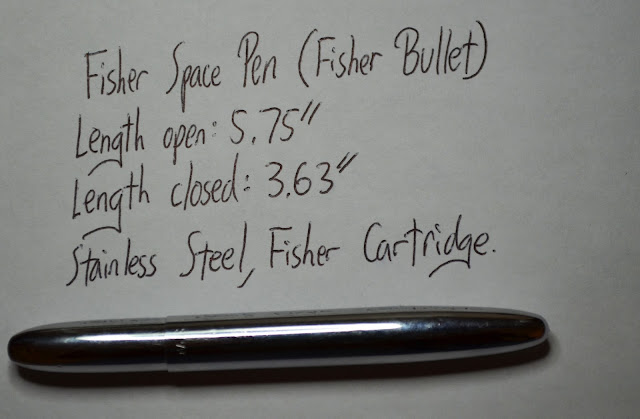 Fisher Space Pen (Fisher Bullet)
Length open: 5.75"
Length closed: 3.63"
Stainless Steel, Fisher Cartridge.